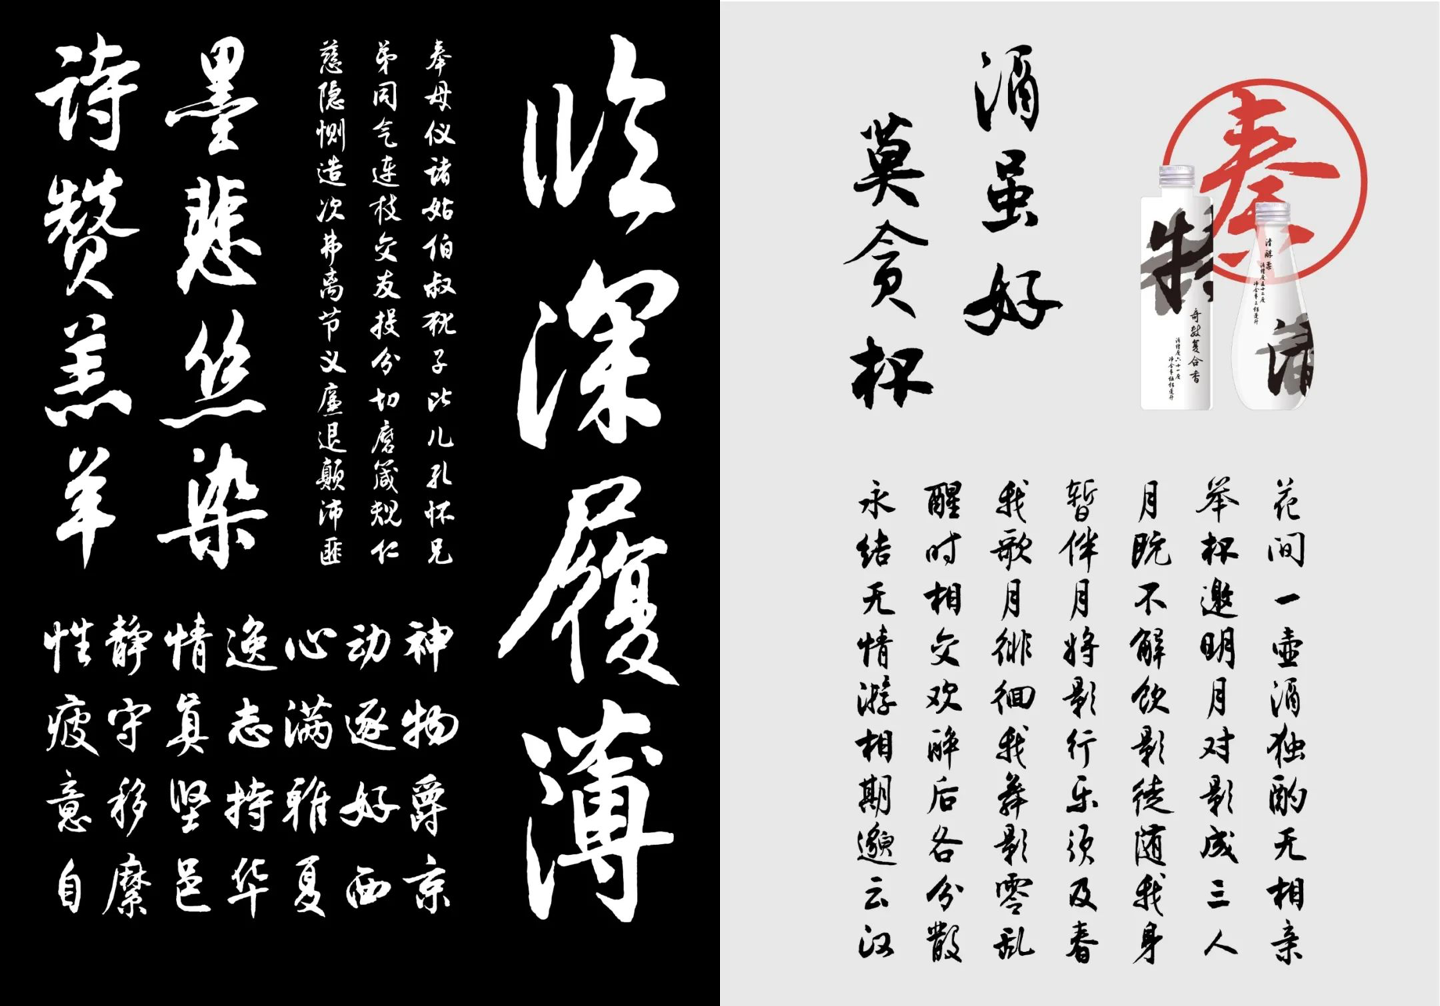 临深履薄
奉母仪诸姑伯叔犹子比儿孔怀兄
弟同气连枝交友投分切磨箴规仁
慈隐恻造次弗离节义廉退颠沛匪
墨悲丝染
诗赞羔羊
性静情逸心动神
疲守真志满逐物
意移坚持雅好爵
自縻邑华夏西京
酒虽好
莫贪杯
特
奇数复合香
花间一壶酒独酌无相亲
举杯邀明月对影成三人
月既不解饮影徒随我身
暂伴月将影行乐须及春
我歌月徘徊我舞影零乱
醒时相交欢醉后各分散
永结无情游相期邈云汉